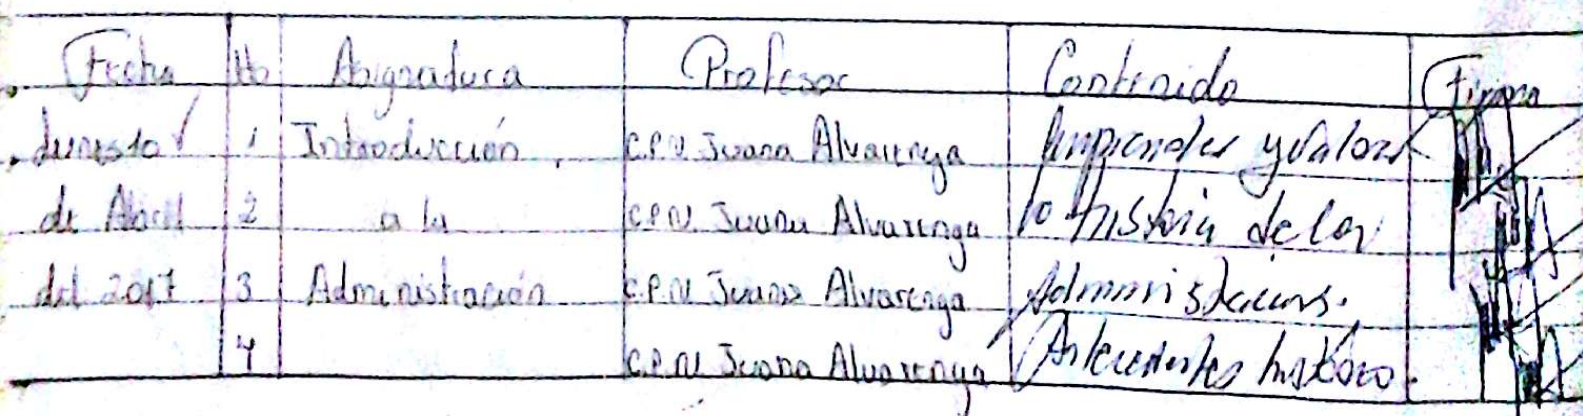 Fecha No Asignatura Profesor Contenido Firma
lunes 10 1 Introducción C.P.N Juana Alvarenga y Valores
de Abril 2 a la C.P.N Juana Alvarenga historia de la
del 2017 3 Administración C.P.N Juana Alvarenga
4 C.P.N Juana Alvarenga Antecedentes